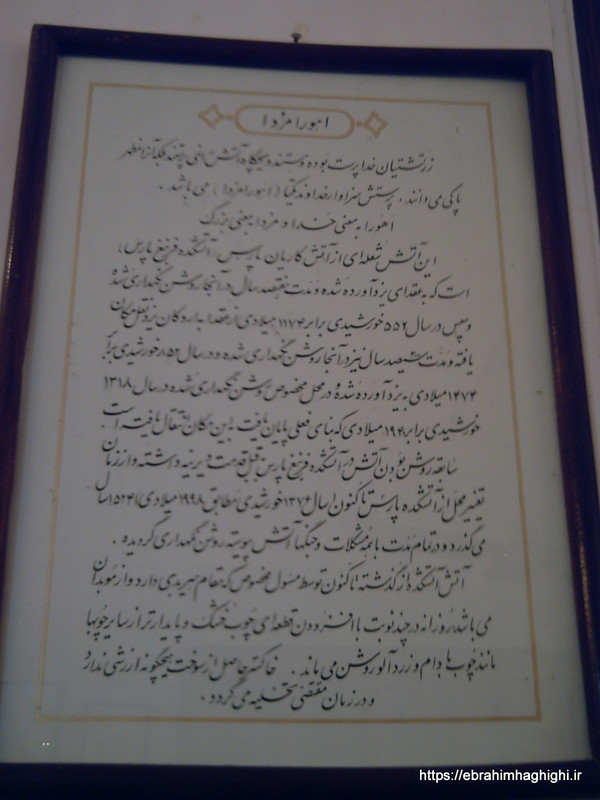 اهورامزدا
زرتشتیان خداپرست بوده و هستند و هیچگاه آتش را نمی پرستند بلکه آنرا مظهر
پاکی می دانند، پرستش سزاوار خداوند یکتا (اهورامزدا) می باشد.
اهورا به معنی خدا و مزدا به معنی بزرگ
این آتش شعله ای از آتش کاریان پارس (آتشکده فرنبغ پارس)
است که به عقدای یزد آورده شده و مدت هفتصد سال در آنجا روشن نگهداری شده
و سپس در سال ۵۵۶ خورشیدی برابر ۱۱۷۴ میلادی از عقدا به اردکان یزد نقل مکان
یافته و مدت سیصد سال نیز در آنجا روشن نگهداری شده و در سال ۸۵۲ خورشیدی برابر
۱۴۷۴ میلادی به یزد آورده شده و در محل مخصوص روشن نگهداری شده در سال ۱۳۱۸
خورشیدی برابر ۱۹۴۰ میلادی که بنای فعلی پایان یافت به این مکان انتقال یافته است
سابقه روشن بودن آتش در آتشکده فرنبغ پارس قدمت دیرینه داشته و از زمان
تغییر محل از آتشکده پارس تاکنون (سال ۱۳۷۶ خورشیدی مطابق ۱۹۹۸ میلادی) ۱۵۲۴ سال
می گذرد و در تمام مدت با همه مشکلات و جنگها آتش پیوسته روشن نگهداری گردیده.
آتش آتشکده از گذشته تاکنون توسط مسئول مخصوص که مقام هیربدی دارد و از موبدان
می باشد هر روزانه در چند نوبت با افزودن قطعه ای چوب خشک و پایدارتر از سایر چوبها
مانند چوب بادام و زردآلو روشن می ماند. خاکستر حاصل از سوخت هیچگونه ارزشی ندارد
و در زمان مقتضی تخلیه می گردد.
https://ebrahimhaghighi.ir